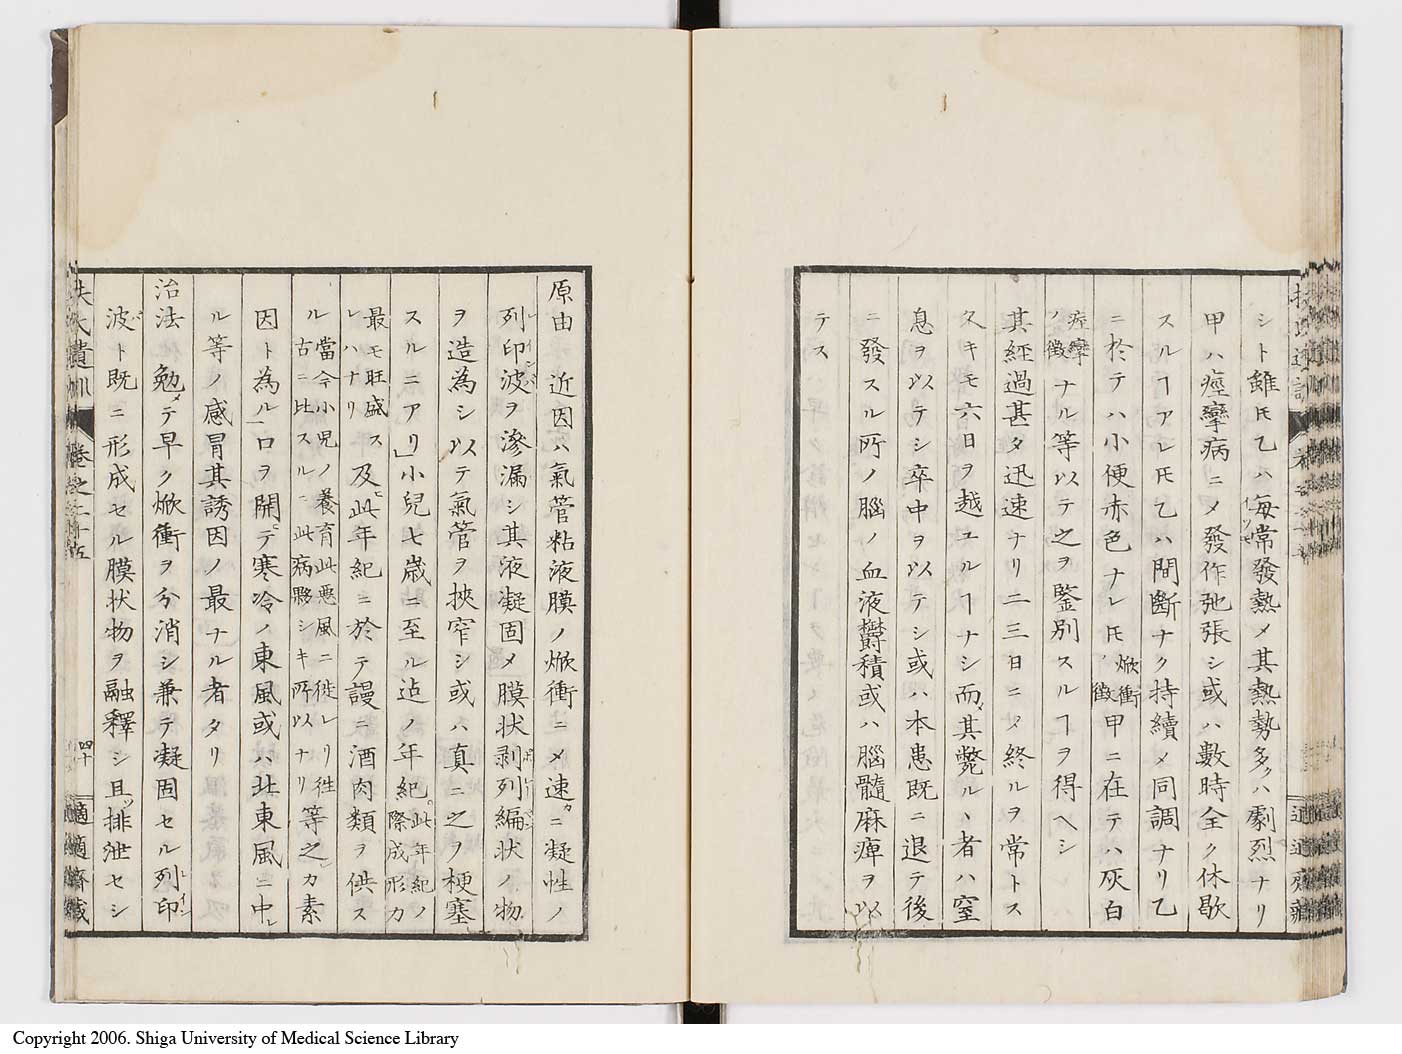 シト雖𪜈乙ハ毎常發熱メ其熱勢多クハ劇烈ナリ
甲ハ痙攣病ニメ發作弛張シ或ハ數時全ク休歇
スルヿアレ𪜈乙ハ間斷ナク持續メ同調ナリ乙
ニ於テハ小便赤色ナレ𪜈焮衝徴甲ニ在テハ灰白
痙攣ノ徴ナル等以テ之ヲ鑒別スルヿヲ得ヘシ
其經過甚タ迅速ナリ二三日ニメ終ルヲ常トス
久キモ六日ヲ越ユルヿナシ而其斃ルヽ者ハ窒
息ヲ以テシ卒中ヲ以テシ或ハ本患既ニ退テ後
ニ發スル所ノ腦ノ血液欝積或ハ腦髓麻痺ヲ以
テス
原由 近因ハ氣管粘液膜ノ焮衝ニメ速カニ凝性ノ
列印波ヲ滲漏シ其液凝固メ膜状剥列編状ノ物
ヲ造為シ以テ氣管ヲ挾窄シ或ハ真ニ之ヲ梗塞
スルニアリ」小兒七歳ニ至ル迠ノ年紀此年紀ノ際成形力
最モ旺盛スレハナリ及ヒ此年紀ニ於テ謾ニ酒肉類ヲ供ス
ル當今小児ノ養育此悪風ニ徙レリ古ニ比スルニ此病夥シキ所以ナリ徃等之カ素
因ト為ル」口ヲ開テ寒冷ノ東風或ハ北東風ニ中
ル等ノ感冒其誘因ノ最ナル者タリ
治法 勉メテ早ク焮衝ヲ分消シ兼テ凝固セル列印
波ト既ニ形成セル膜状物ヲ融釋シ且ツ排泄セシ
扶氏遺訓 卷之十五
四十
適適齋藏
Copyright 2006. Shiga University of Medical Science Library